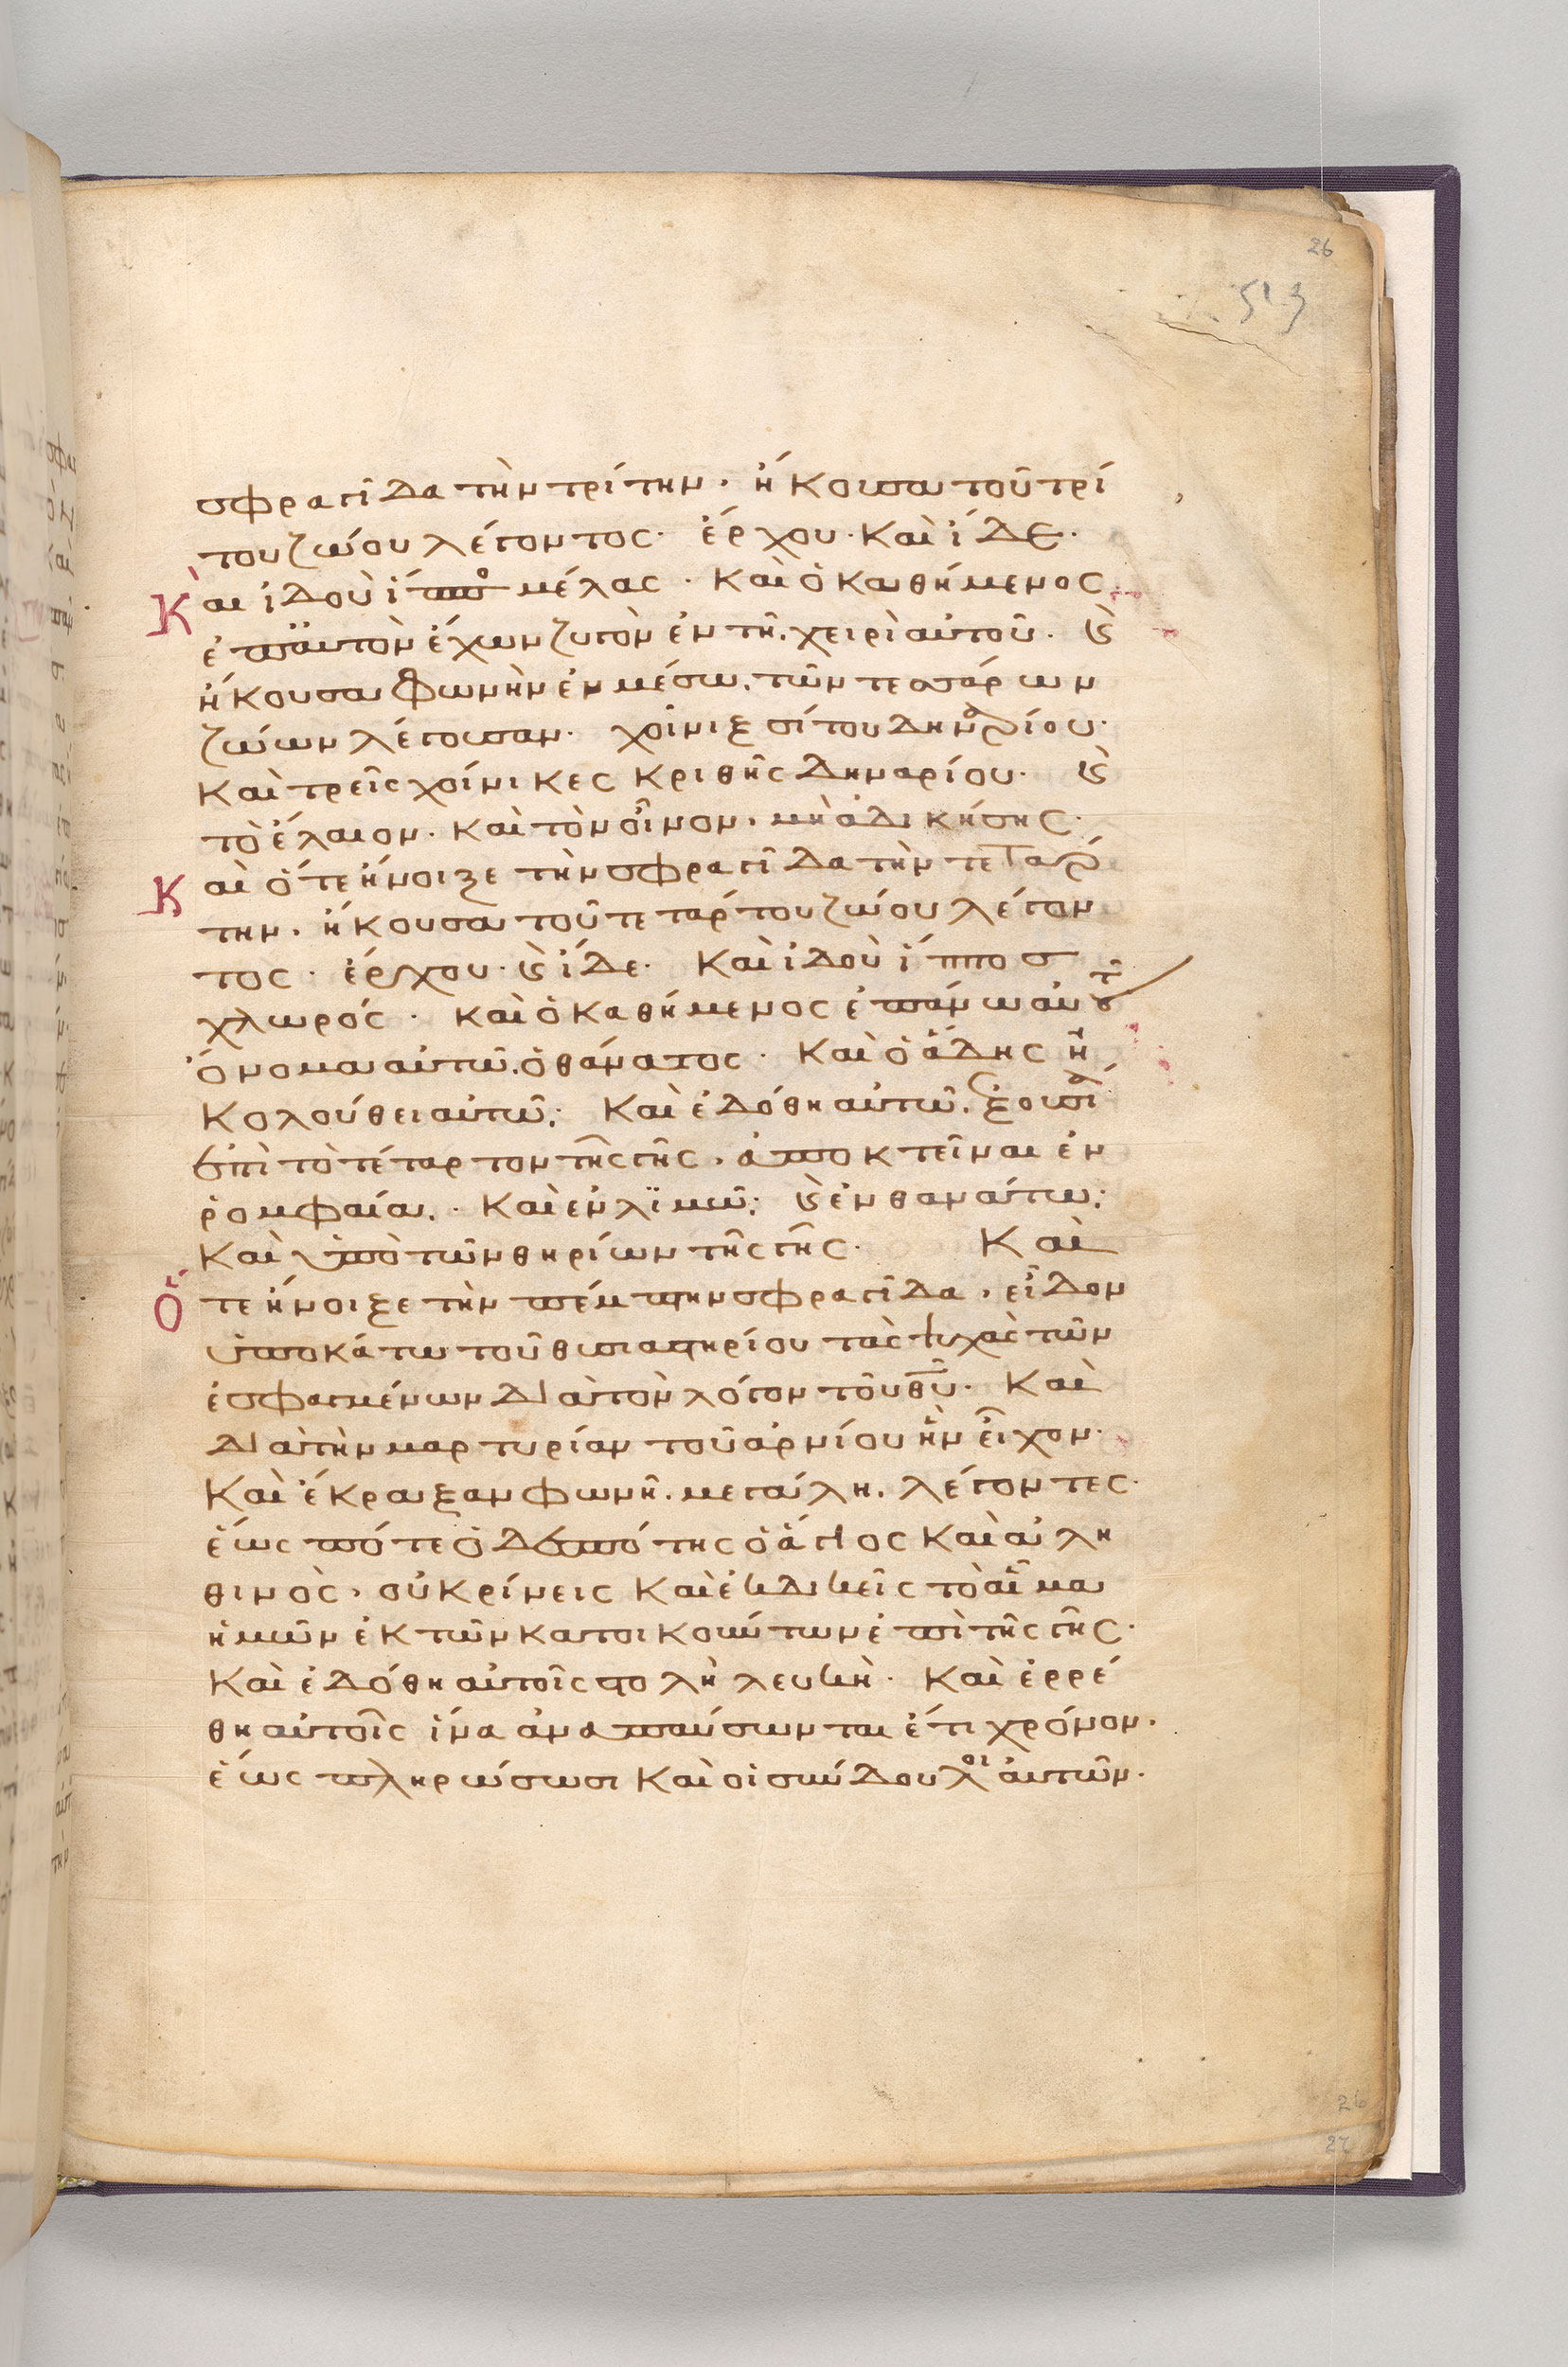 26
513
σφραγῖδα τὴν τρίτην. ἤκουσα τοῦ τρί
του ζώου λέγοντος· ἔρχου· καὶ ἴδε·
Καὶ ἰδοὺ ἵππο μέλας· καὶ ὁ καθήμενος
ἐπ αυτὸν ἔχων ζυγὸν ἐν τῆ χειρὶ αὐτοῦ. ϗ
ἤκουσα φωνὴν ἐν μέσω τῶν τεσσάρων
ζώων λέγουσαν· χοῖνιξ σίτου δηναρίου·
καὶ τρεῖς χοίνικες κριθῆς δηναρίου· ϗ
τὸ ἔλαιον· καὶ τὸν οἶνον. μὴ ἀδικήσης·
Καὶ ὅτε ἤνοιξε τὴν σφραγῖδα τὴν τετάρ
την. ἤκουσα τοῦ τετάρτου ζώου λέγον
τος· ἔρχου· ϗ ἴδε· καὶ ἰδοὺ ἵππος
χλωρός· καὶ ὁ καθήμενος ἐπάνω αὐτοῦ
ὄνομα αὐτῶ ὁ θάνατος· καὶ ὁ ἅδης ἠ
κολούθει αὐτῶ· καὶ ἐδόθη αὐτῶ ἐξουσί
ἐπὶ τὸ τέταρτον τῆς γῆς. ἀποκτεῖναι ἐν
ῥομφαία· καὶ ἐν λϊμῶ· ϗ ἐν θανάτω·
καὶ ὑπὸ τῶν θηρίων τῆς γῆς· Καὶ
Ὅτε ἤνοιξε τὴν πέμπτην σφραγῖδα. εἶδον
ὑποκάτω τοῦ θυσιαστηρίου τὰς ψυχὰς τῶν
ἐσφαγμένων διὰ τὸν λόγον τοῦ θυ· καὶ
διὰ τὴν μαρτυρίαν τοῦ ἀρνίου ἣν εἶχον·
καὶ ἔκραξαν φωνῆ μεγάλη. λέγοντες·
ἕως πότε ὁ δεσπότης ὁ ἅγιος καὶ ἀλη
θινὸς. οὐ κρίνεις καὶ ἐκδικεῖς τὸ αἷμα
ἡμῶν ἐκ τῶν κατοικούντων ἐπὶ τῆς γῆς·
καὶ ἐδόθη αὐτοῖς στολὴ λευκὴ· καὶ ἐρρέ
θη αὐτοῖς ἵνα ἀναπαύσωνται ἔτι χρόνον·
ἕως πληρώσωσι καὶ οἱ σύνδουλοι αὐτῶν·
26
27